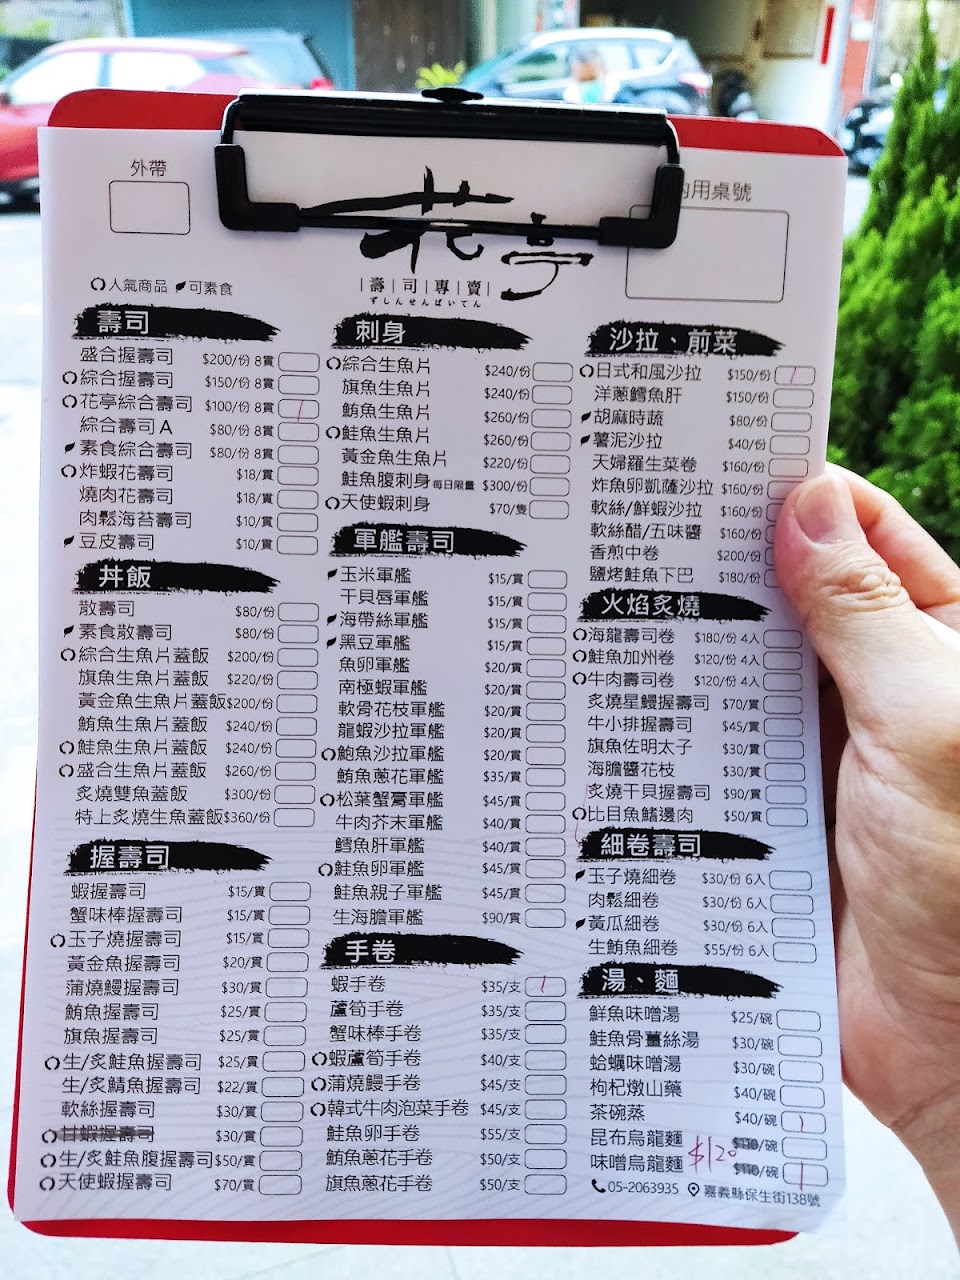 外帶
內用桌號
花亭
壽司專賣
ずしんせんばいてん
人氣商品 可素食
壽司
盛合握壽司 $200/份 8貫
綜合握壽司 $150/份 8貫
花亭綜合壽司 $100/份 8貫 1
綜合壽司A $80/份 8貫
素食綜合壽司 $80/份 8貫
炸蝦花壽司 $18/貫
燒肉花壽司 $18/貫
肉鬆海苔壽司 $10/貫
豆皮壽司 $10/貫
丼飯
散壽司 $80/份
素食散壽司 $80/份
綜合生魚片蓋飯 $200/份
旗魚生魚片蓋飯 $220/份
黃金魚生魚片蓋飯 $200/份
鮪魚生魚片蓋飯 $240/份
鮭魚生魚片蓋飯 $240/份
盛合生魚片蓋飯 $260/份
炙燒雙魚蓋飯 $300/份
特上炙燒生魚蓋飯 $360/份
握壽司
蝦握壽司 $15/貫
蟹味棒握壽司 $15/貫
玉子燒握壽司 $15/貫
黃金魚握壽司 $20/貫
蒲燒鰻握壽司 $30/貫
鮪魚握壽司 $25/貫
旗魚握壽司 $25/貫
生/炙鮭魚握壽司 $25/貫
生/炙鯖魚握壽司 $22/貫
軟絲握壽司 $30/貫
甘蝦握壽司 $30/貫
生/炙鮭魚腹握壽司 $50/貫
天使蝦握壽司 $70/貫
刺身
綜合生魚片 $240/份
旗魚生魚片 $240/份
鮪魚生魚片 $260/份
鮭魚生魚片 $260/份
黃金魚生魚片 $220/份
鮭魚腹刺身 每日限量 $300/份
天使蝦刺身 $70/隻
軍艦壽司
玉米軍艦 $15/貫
干貝唇軍艦 $15/貫
海帶絲軍艦 $15/貫
黑豆軍艦 $15/貫
魚卵軍艦 $20/貫
南極蝦軍艦 $20/貫
軟骨花枝軍艦 $20/貫
龍蝦沙拉軍艦 $20/貫
鮑魚沙拉軍艦 $20/貫
鮪魚蔥花軍艦 $35/貫
松葉蟹膏軍艦 $45/貫
牛肉芥末軍艦 $40/貫
鱈魚肝軍艦 $40/貫
鮭魚卵軍艦 $45/貫
鮭魚親子軍艦 $45/貫
生海膽軍艦 $90/貫
手卷
蝦手卷 $35/支 1
蘆筍手卷 $35/支
蟹味棒手卷 $35/支
蝦蘆筍手卷 $40/支
蒲燒鰻手卷 $45/支
韓式牛肉泡菜手卷 $45/支
鮭魚卵手卷 $55/支
鮪魚蔥花手卷 $50/支
旗魚蔥花手卷 $50/支
沙拉、前菜
日式和風沙拉 $150/份 1
洋蔥鱈魚肝 $150/份
胡麻時蔬 $80/份
薯泥沙拉 $40/份
天婦羅生菜卷 $160/份
炸魚卵凱薩沙拉 $160/份
軟絲/鮮蝦沙拉 $160/份
軟絲醋/五味醬 $160/份
香煎中卷 $200/份
鹽烤鮭魚下巴 $180/份
火焰炙燒
海龍壽司卷 $180/份 4入
鮭魚加州卷 $120/份 4入
牛肉壽司卷 $120/份 4入
炙燒星鰻握壽司 $70/貫
牛小排握壽司 $45/貫
旗魚佐明太子 $30/貫
海膽醬花枝 $30/貫
炙燒干貝握壽司 $90/貫
比目魚鰭邊肉 $50/貫
細卷壽司
玉子燒細卷 $30/份 6入
肉鬆細卷 $30/份 6入
黃瓜細卷 $30/份 6入
生鮪魚細卷 $55/份 6入
湯、麵
鮮魚味噌湯 $25/碗
鮭魚骨薑絲湯 $30/碗
蛤蠣味噌湯 $30/碗
枸杞燉山藥 $40/碗
茶碗蒸 $40/碗 1
昆布烏龍麵 $110/碗
$120
味噌烏龍麵 $110/碗 1
05-2063935 嘉義縣保生街138號